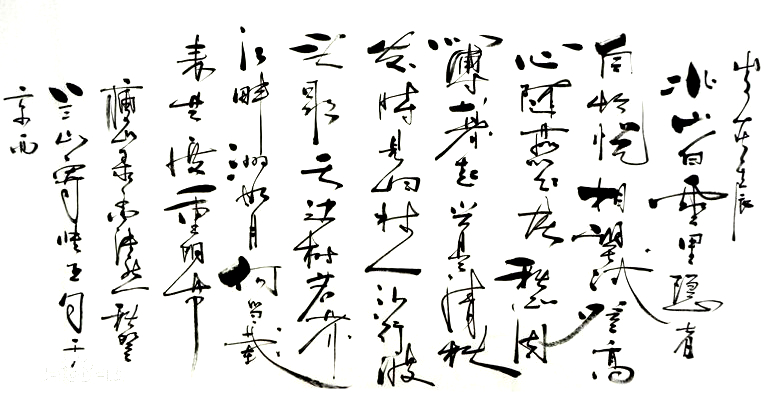 岁在壬辰
北山白雲里隐者
自怡悦相望试登高
心随雁飞灭愁因
薄暮起兴是清秋
发時見归村人沙行渡
头歇天边树若荠
江畔洲如月何当载
来共醉重阳节
录孟浩然秋登
兰山寄张五句于
京西